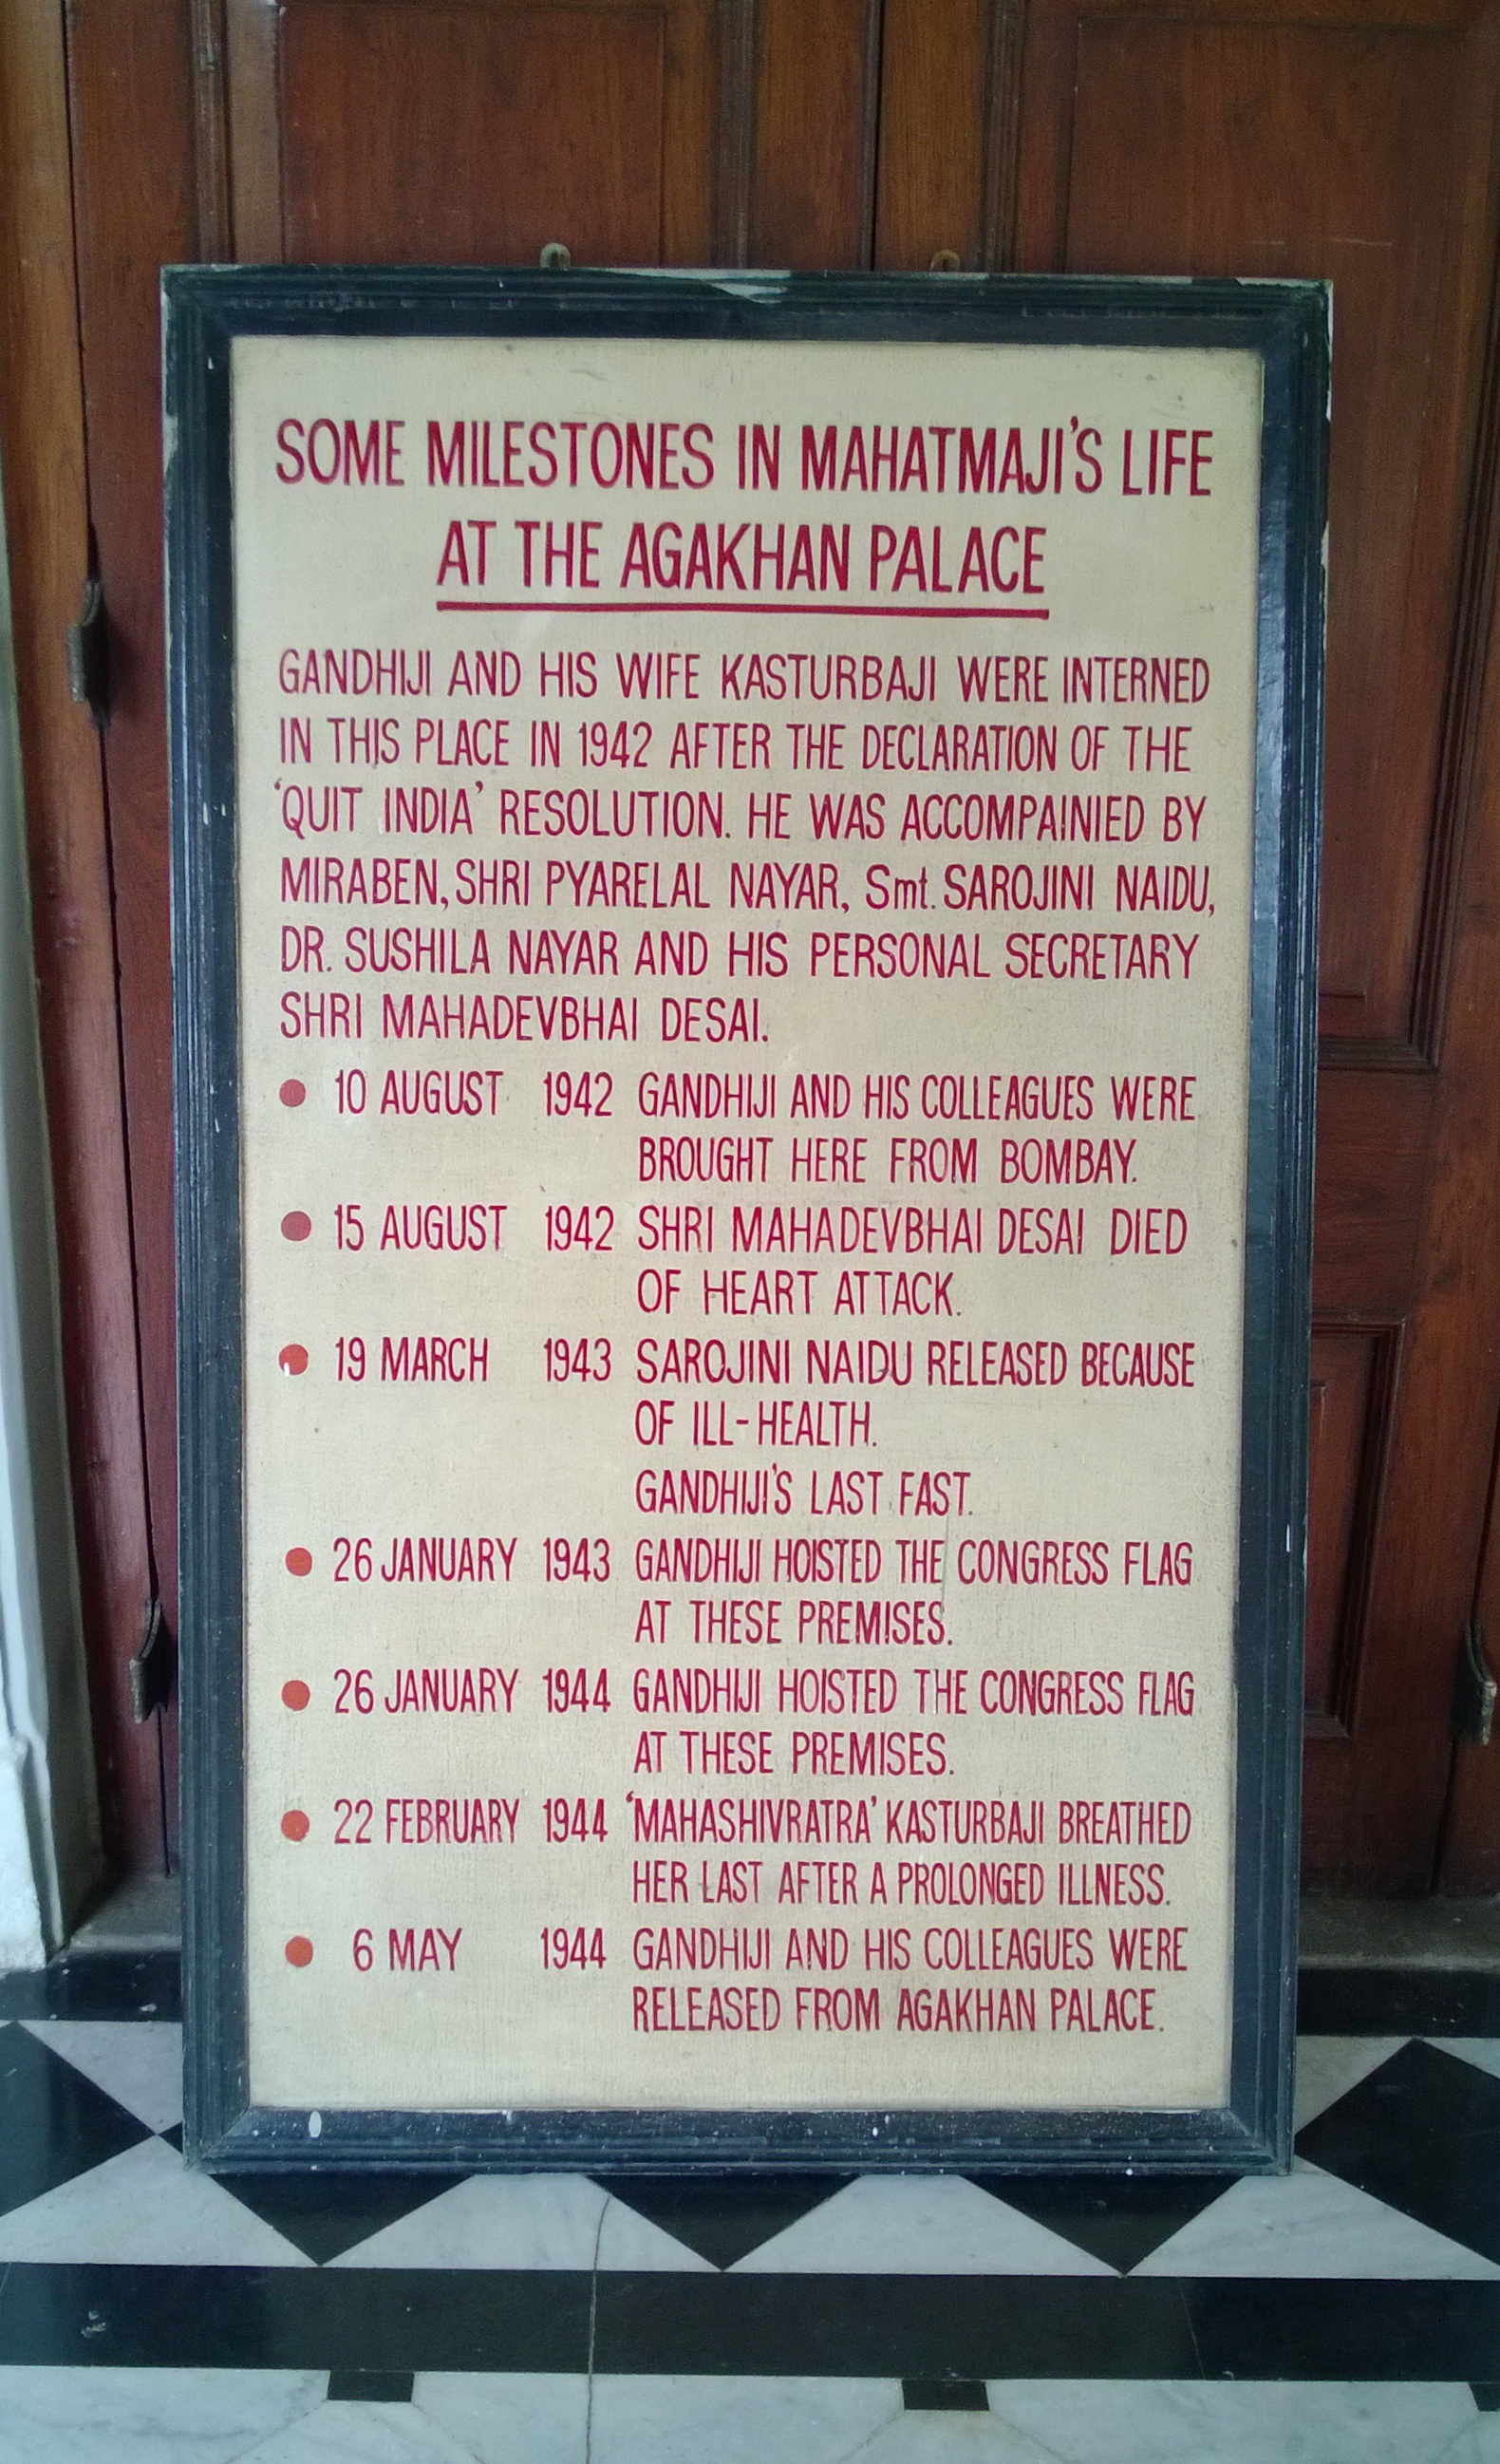 SOME MILESTONES IN MAHATMAJI'S LIFE
AT THE AGAKHAN PALACE
GANDHIJI AND HIS WIFE KASTURBAJI WERE INTERNED
IN THIS PLACE IN 1942 AFTER THE DECLARATION OF THE
'QUIT INDIA' RESOLUTION. HE WAS ACCOMPAINIED BY
MIRABEN, SHRI PYARELAL NAYAR, Smt. SAROJINI NAIDU,
DR. SUSHILA NAYAR AND HIS PERSONAL SECRETARY
SHRI MAHADEVBHAI DESAI.
● 10 AUGUST 1942 GANDHIJI AND HIS COLLEAGUES WERE
BROUGHT HERE FROM BOMBAY.
● 15 AUGUST 1942 SHRI MAHADEVBHAI DESAI DIED
OF HEART ATTACK.
● 19 MARCH 1943 SAROJINI NAIDU RELEASED BECAUSE
OF ILL-HEALTH.
GANDHIJI'S LAST FAST.
● 26 JANUARY 1943 GANDHIJI HOISTED THE CONGRESS FLAG
AT THESE PREMISES.
● 26 JANUARY 1944 GANDHIJI HOISTED THE CONGRESS FLAG
AT THESE PREMISES.
● 22 FEBRUARY 1944 'MAHASHIVRATRA' KASTURBAJI BREATHED
HER LAST AFTER A PROLONGED ILLNESS.
● 6 MAY 1944 GANDHIJI AND HIS COLLEAGUES WERE
RELEASED FROM AGAKHAN PALACE.